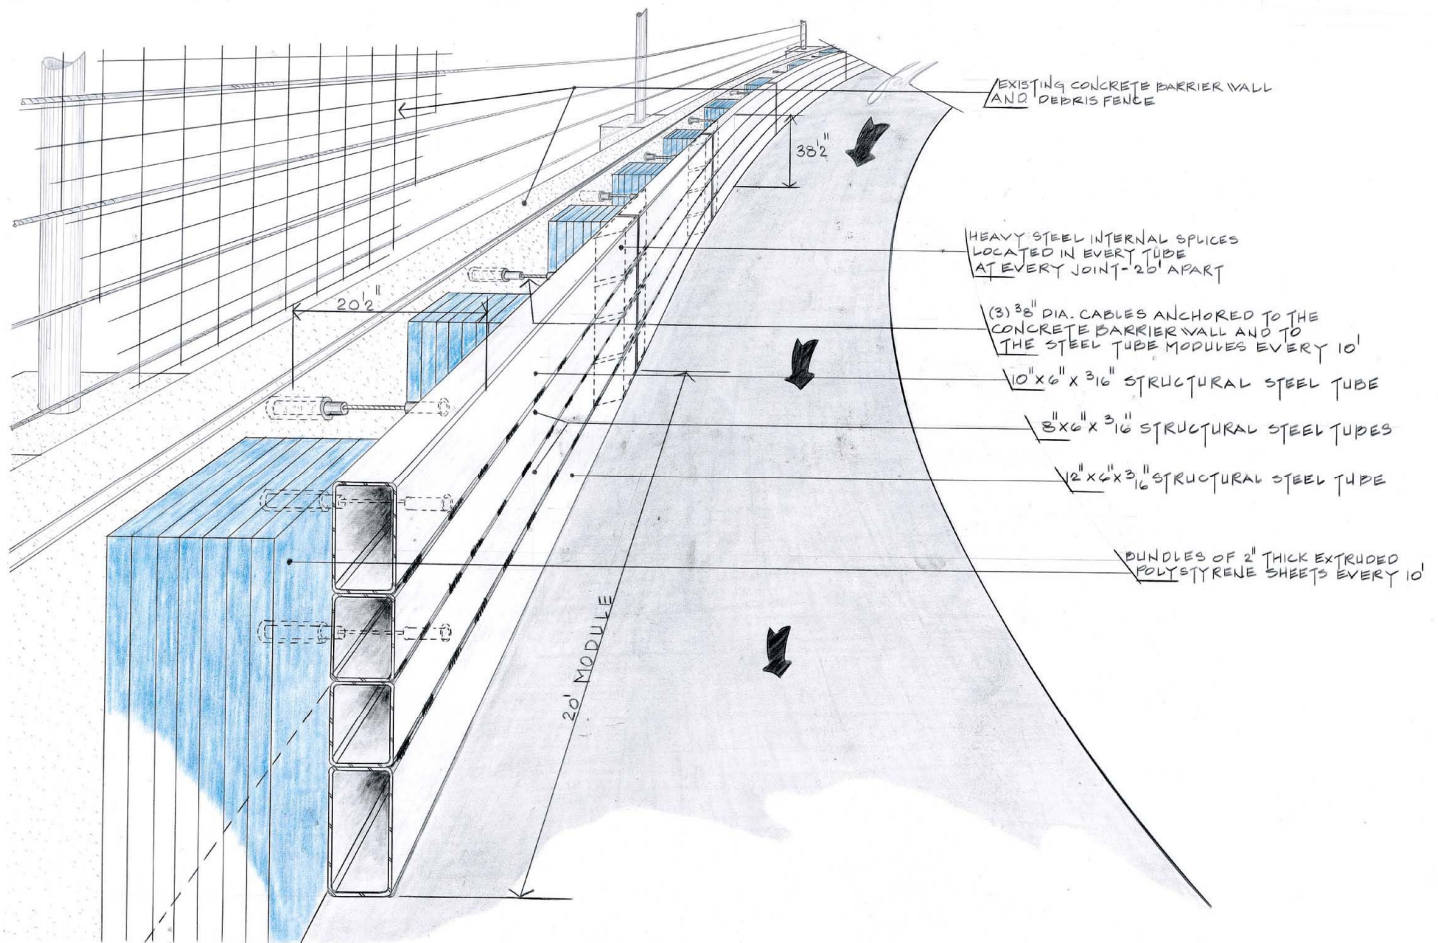 EXISTING CONCRETE BARRIER WALL
AND DEBRIS FENCE
38½"
HEAVY STEEL INTERNAL SPLICES
LOCATED IN EVERY TUBE
AT EVERY JOINT-20' APART
20½"
(3) 3/8" DIA. CABLES ANCHORED TO THE
CONCRETE BARRIER WALL AND TO
THE STEEL TUBE MODULES EVERY 10'
10"x6"x 3/16" STRUCTURAL STEEL TUBE
8"x6"x 3/16" STRUCTURAL STEEL TUBES
12"x6"x 3/16" STRUCTURAL STEEL TUBE
BUNDLES OF 2" THICK EXTRUDED
POLYSTYRENE SHEETS EVERY 10'
20' MODULE